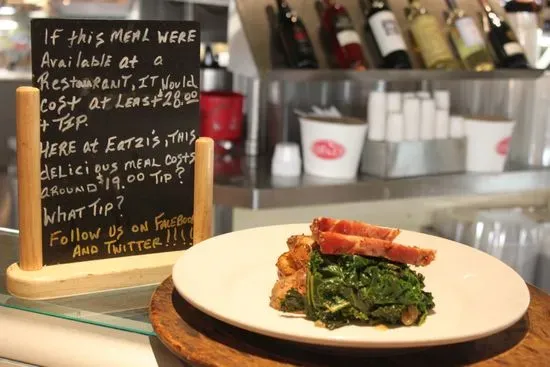 If this MEAL WERE
Available at a
Restaurant, IT Would
cost at Least $28.00
+ TIP.
HERE at EATZi's, THIS
delicious meal costs
around $19.00 TIP?
WHAT TIP?
Follow us on Facebook
AND TWITTER!!!!